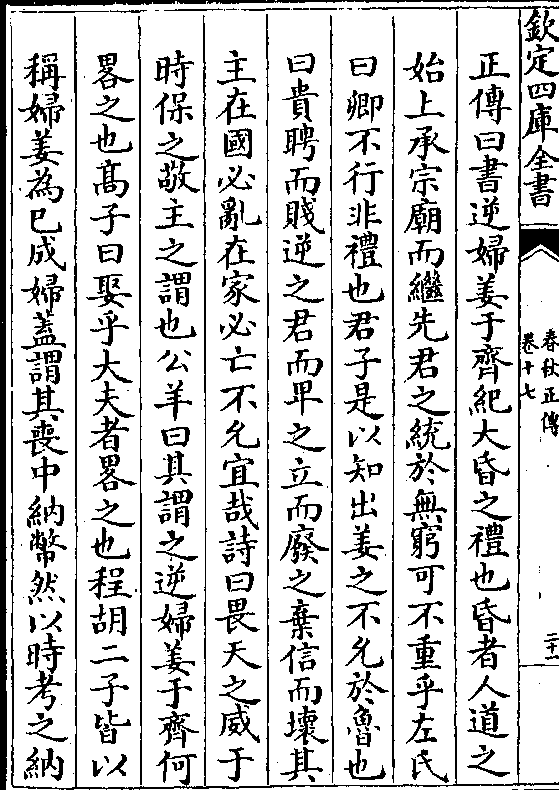 欽定四庫全書
春秋正傳
卷十七
二十一
正傳曰書逆婦姜于齊紀大昏之禮也昏者人道之
始上承宗廟而繼先君之統於無窮可不重乎左氏
曰卿不行非禮也君子是以知出姜之不允於魯也
曰貴聘而賤逆之君而卑之立而廢之棄信而壞其
主在國必亂在家必亡不允宜哉詩曰畏天之威于
時保之敬主之謂也公羊曰其謂之逆婦姜于齊何
畧之也髙子曰娶乎大夫者畧之也程胡二子皆以
稱婦姜為已成婦蓋謂其喪中納幣然以時考之納